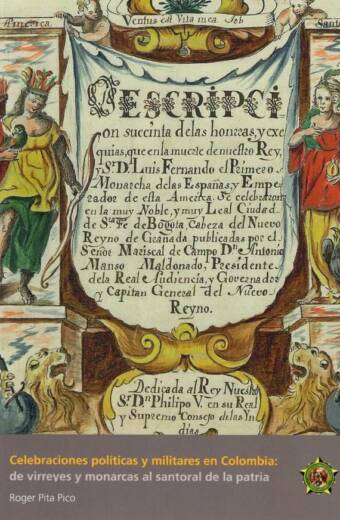 America.
Ventus est Vita mea Job
DESCRIPCI
on succinta de las honrras, y exe
quias, que en la muerte de nuestro Rey,
y Sr. Dn. Luis Fernando el Primero
Monarcha de las Españas, y Empe
rador de esta America. Se celebraron
en la muy Noble, y muy Leal Ciudad
de Sta. Fe de Bogota, Cabeza del Nuevo
Reyno de Granada, publicadas por el
Señor Mariscal de Campo Dn. Antonio
Manso Maldonado, Presidente
de la Real Audiencia, y Governador
y Capitan General del Nuevo
Reyno.
Dedicada al Rey Nuestro
Sr. Dn. Philipo V. en su Real
y Supremo Consejo de las In
dias
Celebraciones políticas y militares en Colombia:
de virreyes y monarcas al santoral de la patria
Roger Pita Pico